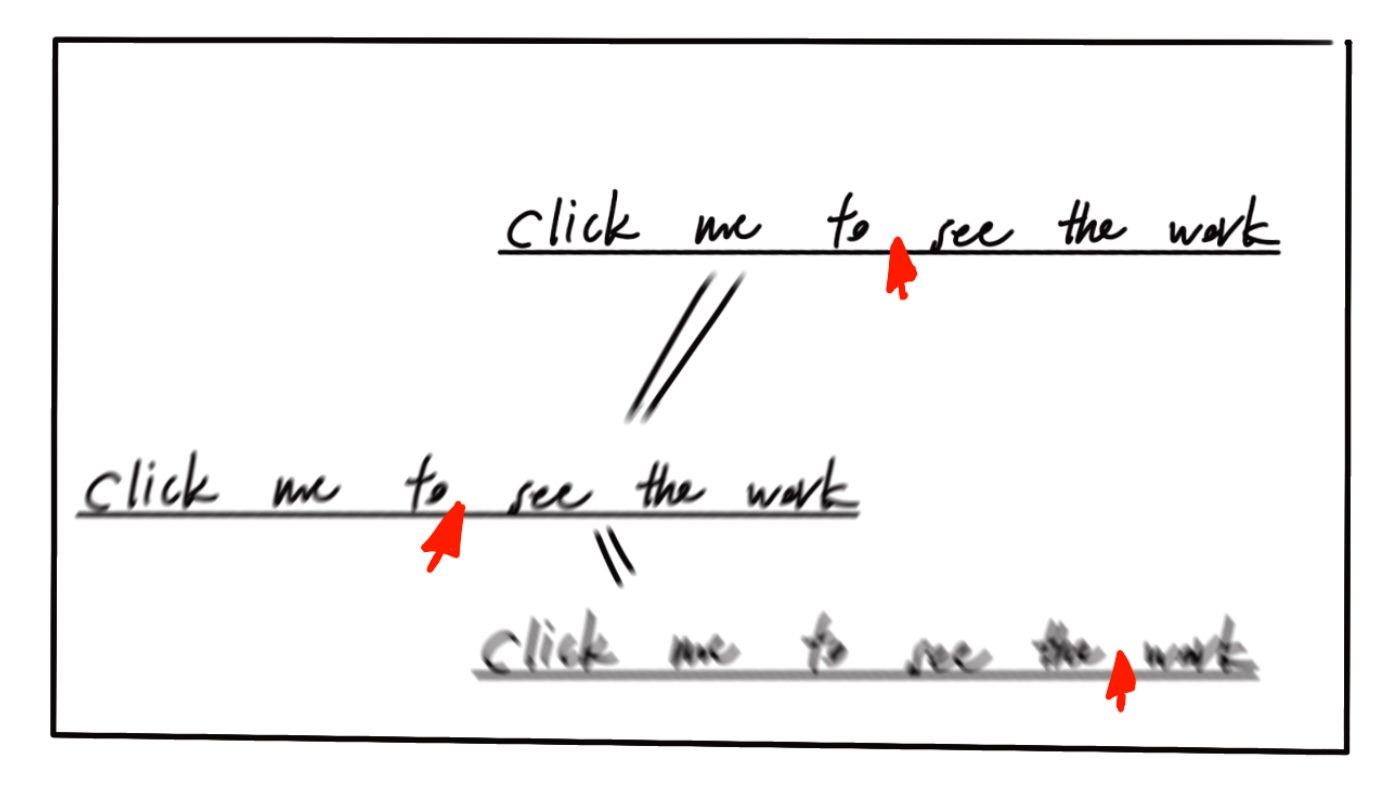 click me to see the work
click me to see the work
click me to see the work